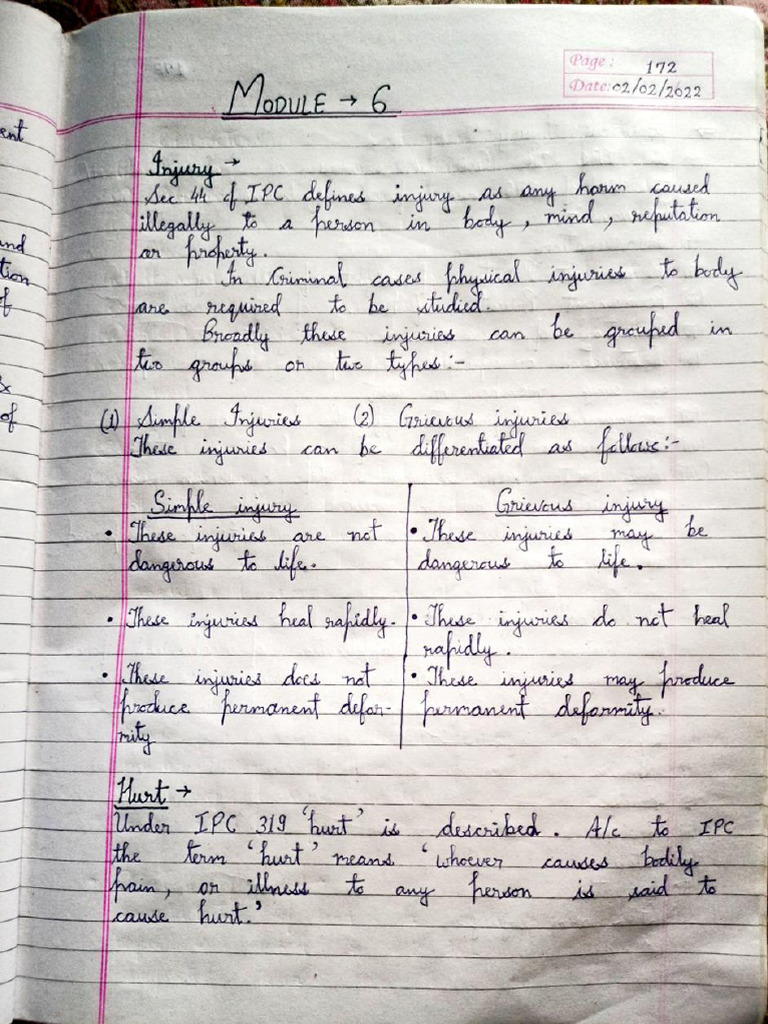 Page: 172
Date: 02/02/2022
MODULE → 6
Injury →
Sec 44 of IPC defines injury as any harm caused
illegally to a person in body, mind, reputation
or property.
In Criminal cases physical injuries to body
are required to be studied.
Broadly these injuries can be grouped in
two groups or two types:-
(1) Simple Injuries (2) Grievous injuries
These injuries can be differentiated as follows:-
Simple injury
• These injuries are not
dangerous to life.
• These injuries heal rapidly.
• These injuries does not
produce permanent defor-
mity
Grievous injury
• These injuries may be
dangerous to life.
• These injuries do not heal
rapidly.
• These injuries may produce
permanent deformity.
Hurt →
Under IPC 319 'hurt' is described. A/c to IPC
the term 'hurt' means 'whoever causes bodily
pain, or illness to any person is said to
cause hurt.'